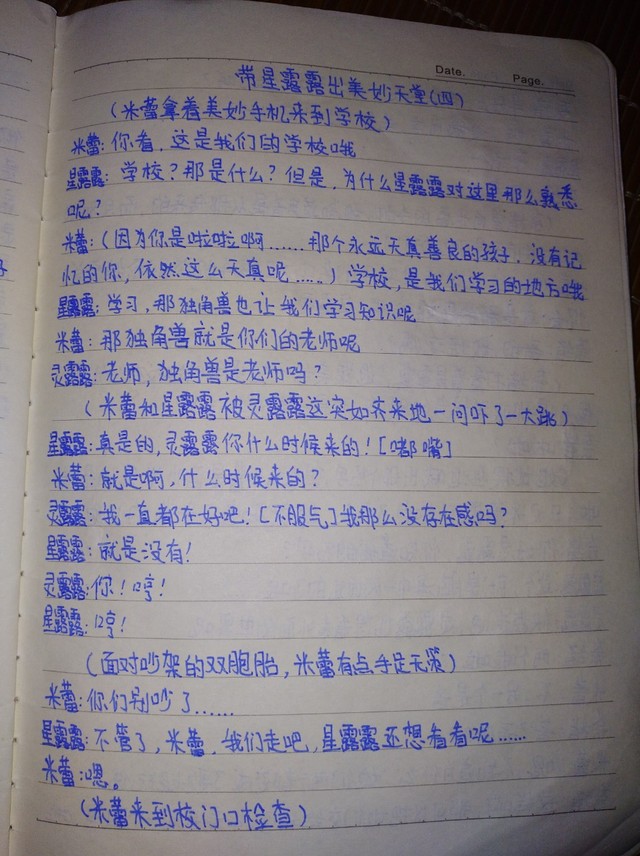 Date.
Page.
带星露露出美妙天堂(四)
(米蕾拿着美妙手机来到学校)
米蕾:你看,这是我们的学校哦
星露露:学校?那是什么?但是,为什么星露露对这里那么熟悉
呢?
米蕾:(因为你是啦啦啊……那个永远天真善良的孩子,没有记
忆的你,依然这么天真呢……)学校,是我们学习的地方哦
星露露:学习,那独角兽也让我们学习知识呢
米蕾:那独角兽就是你们的老师呢
灵露露:老师,独角兽是老师吗?
(米蕾和星露露被灵露露这突如齐来地一问吓了一大跳)
星露露:真是的,灵露露你什么时候来的![嘟嘴]
米蕾:就是啊,什么时候来的?
灵露露:我一直都在好吧![不服气]我那么没存在感吗?
星露露:就是没有!
灵露露:你!哼!
星露露:哼!
(面对吵架的双胞胎,米蕾有点手足无策)
米蕾:你们别吵了……
星露露:不管了,米蕾,我们走吧,星露露还想看看呢……
米蕾:嗯。
(米蕾来到校门口检查)